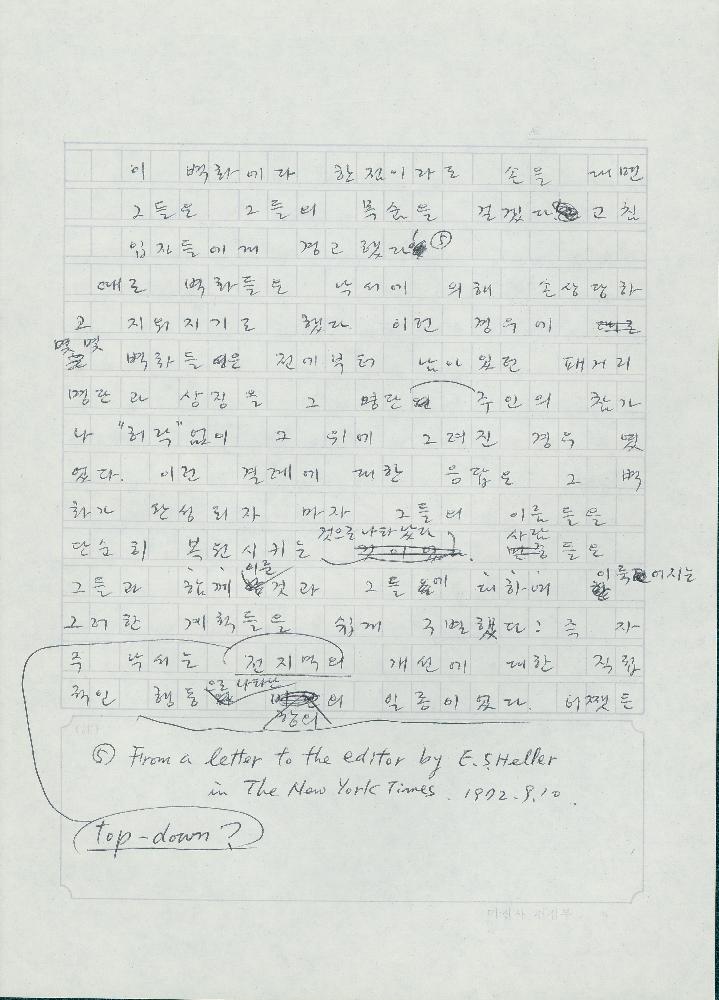 이 벽화에다 한점이라도 손을 대면
그들은 그들의 목숨을 걸겠다고 침
입자들에게 경고했다 ⑤
때로 벽화들은 낙서에 의해 손상당하
고 지워지기도 했다. 이런 경우에
몇몇 벽화들은 전에부터 남아 있던 패거리
명단과 상징을 그 명단 주인의 참가
나 "허락"없이 그 위에 그려진 경우 였
었다. 이런 결례에 대한 응답은 그 벽
화가 완성되자 마자 그들의 이름들을
단순히 복원시키는 것으로 나타났다. 사람들은
그들과 함께 이룬 것과 그들에 대하여 이룩되어지는
그러한 계획들을 쉽게 구별했다: 즉 자
주 낙서는 전지역의 개선에 대한 직접
적인 행동으로 나타난 항의의 일종이었다. 어쨋든
⑤ From a letter to the editor by E.S. Heller
in The New York Times. 1972.9.10.
top-down?